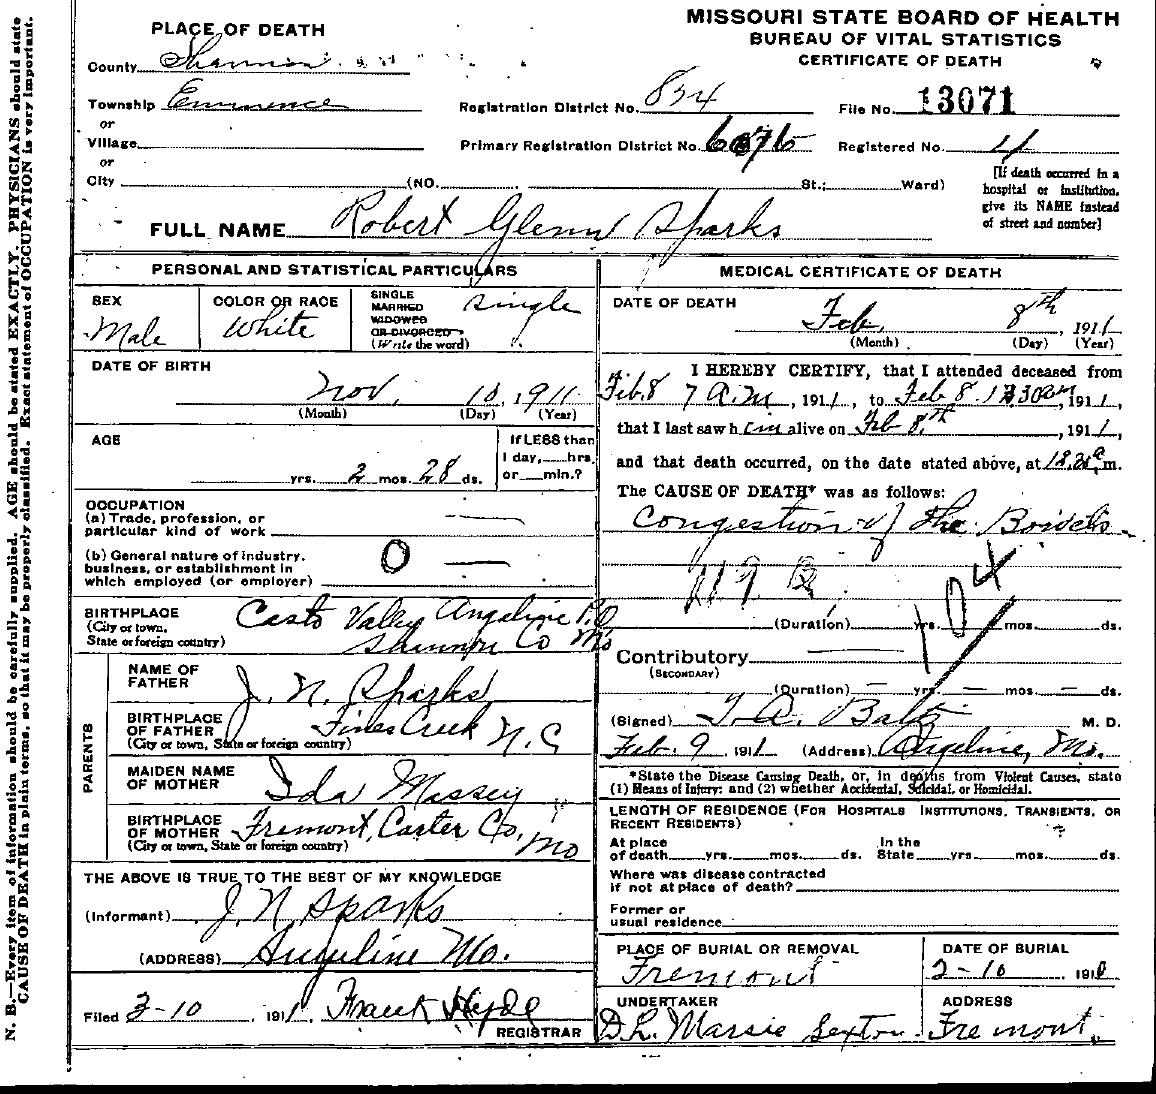 MISSOURI STATE BOARD OF HEALTH
BUREAU OF VITAL STATISTICS
CERTIFICATE OF DEATH
PLACE OF DEATH
County Shannon
Township Eminence
or
Village
or
City (NO. St.; Ward)
Registration District No. 834
File No. 13071
Primary Registration District No.
Registered No. 4
[If death occurred in a
hospital or institution,
give its NAME instead
of street and number]
FULL NAME Robert Glenn Sparks
PERSONAL AND STATISTICAL PARTICULARS
SEX
Male
COLOR OR RACE
White
SINGLE
MARRIED
WIDOWED
OR DIVORCED
(Write the word)
Single
DATE OF BIRTH
Nov. 10, 1911
(Month) (Day) (Year)
AGE
yrs. 2 mos. 28 ds.
If LESS than
1 day, hrs.
or min.?
OCCUPATION
(a) Trade, profession, or
particular kind of work
(b) General nature of industry,
business, or establishment in
which employed (or employer)
0
BIRTHPLACE
(City or town,
State or foreign country)
Casto Valley Angeline P.O
Shannon Co Mo
PARENTS
NAME OF
FATHER
J. N. Sparks
BIRTHPLACE
OF FATHER
(City or town, State or foreign country)
Fines Creek N.C
MAIDEN NAME
OF MOTHER
Ida Massey
BIRTHPLACE
OF MOTHER
(City or town, State or foreign country)
Fremont, Carter Co,
Mo
THE ABOVE IS TRUE TO THE BEST OF MY KNOWLEDGE
(Informant) J. N. Sparks
(ADDRESS) Angeline Mo.
Filed 2-10, 1911, Frank Hyde
REGISTRAR
MEDICAL CERTIFICATE OF DEATH
DATE OF DEATH
Feb. 8th, 1911
(Month) (Day) (Year)
I HEREBY CERTIFY, that I attended deceased from
Feb. 8 7 A.M, 1911, to Feb 8. , 1911,
that I last saw him alive on Feb 8.th, 1911,
and that death occurred, on the date stated above, at m.
The CAUSE OF DEATH* was as follows:
Congestion of the Bowels
119 B
104
(Duration) yrs. mos. ds.
Contributory
(SECONDARY)
(Duration) yrs. mos. ds.
(Signed) T. A. Baltz M. D.
Feb. 9, 1911 (Address) Angeline, Mo.
*State the Disease Causing Death, or, in deaths from Violent Causes, state
(1) Means of Injury; and (2) whether Accidental, Suicidal, or Homicidal.
LENGTH OF RESIDENCE (FOR HOSPITALS INSTITUTIONS, TRANSIENTS, OR
RECENT RESIDENTS)
At place
of death yrs. mos. ds.
In the
State yrs. mos. ds.
Where was disease contracted
if not at place of death?
Former or
usual residence
PLACE OF BURIAL OR REMOVAL
Fremont
DATE OF BURIAL
2-10 191
UNDERTAKER
D.L. Massie Sexton
ADDRESS
Fremont.
N. B.—Every item of information should be carefully supplied. AGE should be stated EXACTLY. PHYSICIANS should state
CAUSE OF DEATH in plain terms, so that it may be properly classified. Exact statement of OCCUPATION is very important.